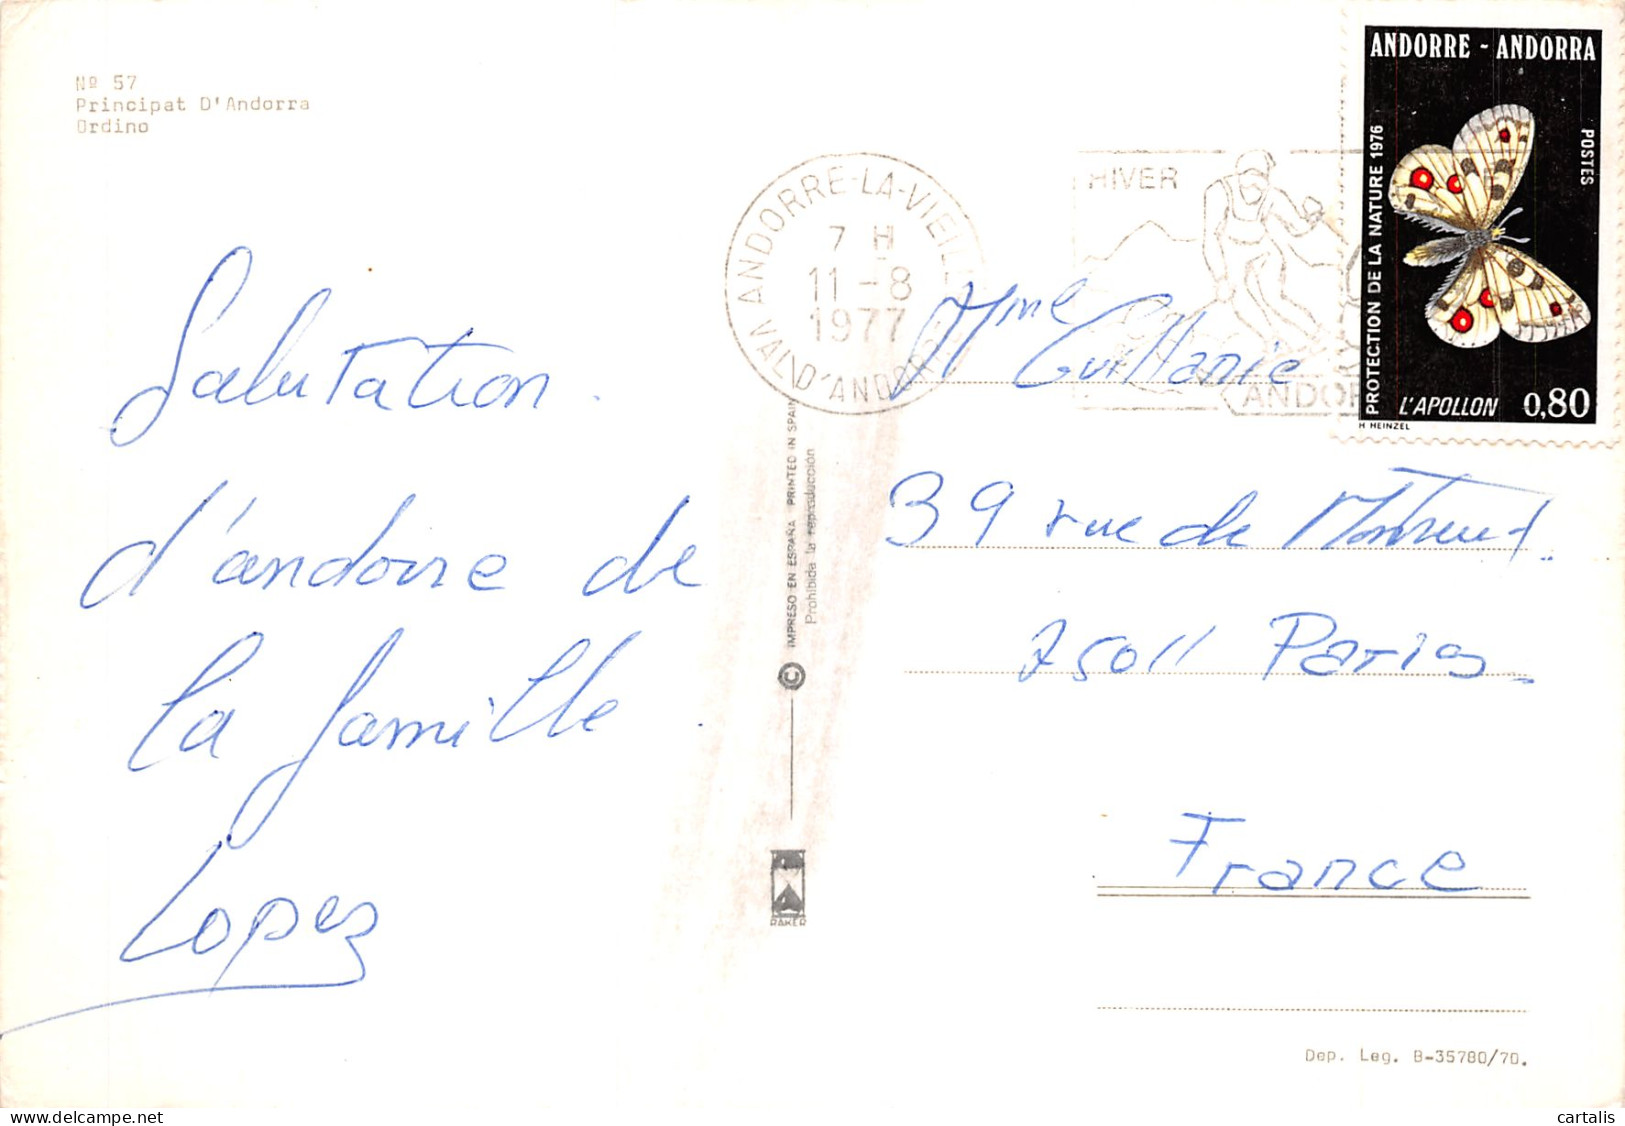 Nº 57
Principat D'Andorra
Ordino
ANDORRE - ANDORRA
POSTES
PROTECTION DE LA NATURE 1976
L'APOLLON 0,80
H HEINZEL
ANDORRE-LA-VIEILLE
7 H
11-8
1977
VAL D'ANDORRE
HIVER
ANDOR
Salutation.
d'andorre de
la famille.
Lopez
Mme
39 rue de Montreuil.
75011 Paris
France
IMPRESO EN ESPAÑA PRINTED IN SPAIN
Prohibida la reproducción
©
RAKER
Dep. Leg. B-35780/70.
cartalis